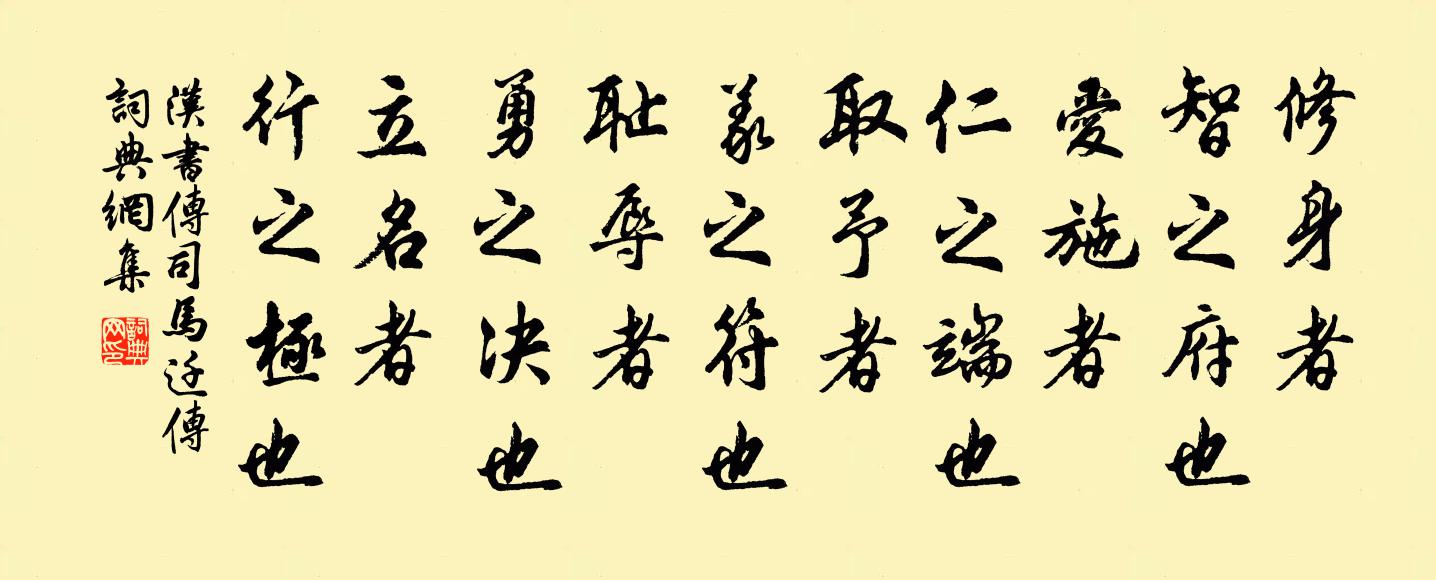 修身者
智之府也
愛施者
仁之端也
取予者
義之符也
耻辱者
勇之决也
立名者
行之極也
漢書傳司馬迁傳
詞典網集
詞典
网印